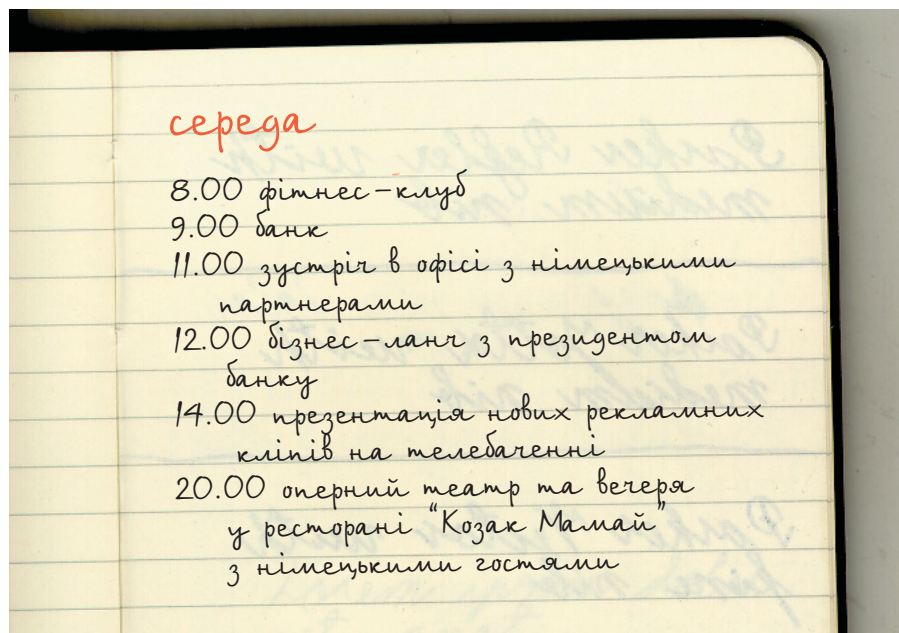 середа
8.00 фітнес-клуб
9.00 банк
11.00 зустріч в офісі з німецькими
партнерами
12.00 бізнес-ланч з президентом
банку
14.00 презентація нових рекламних
кліпів на телебаченні
20.00 оперний театр та вечеря
у ресторані “Козак Мамай”
з німецькими гостями